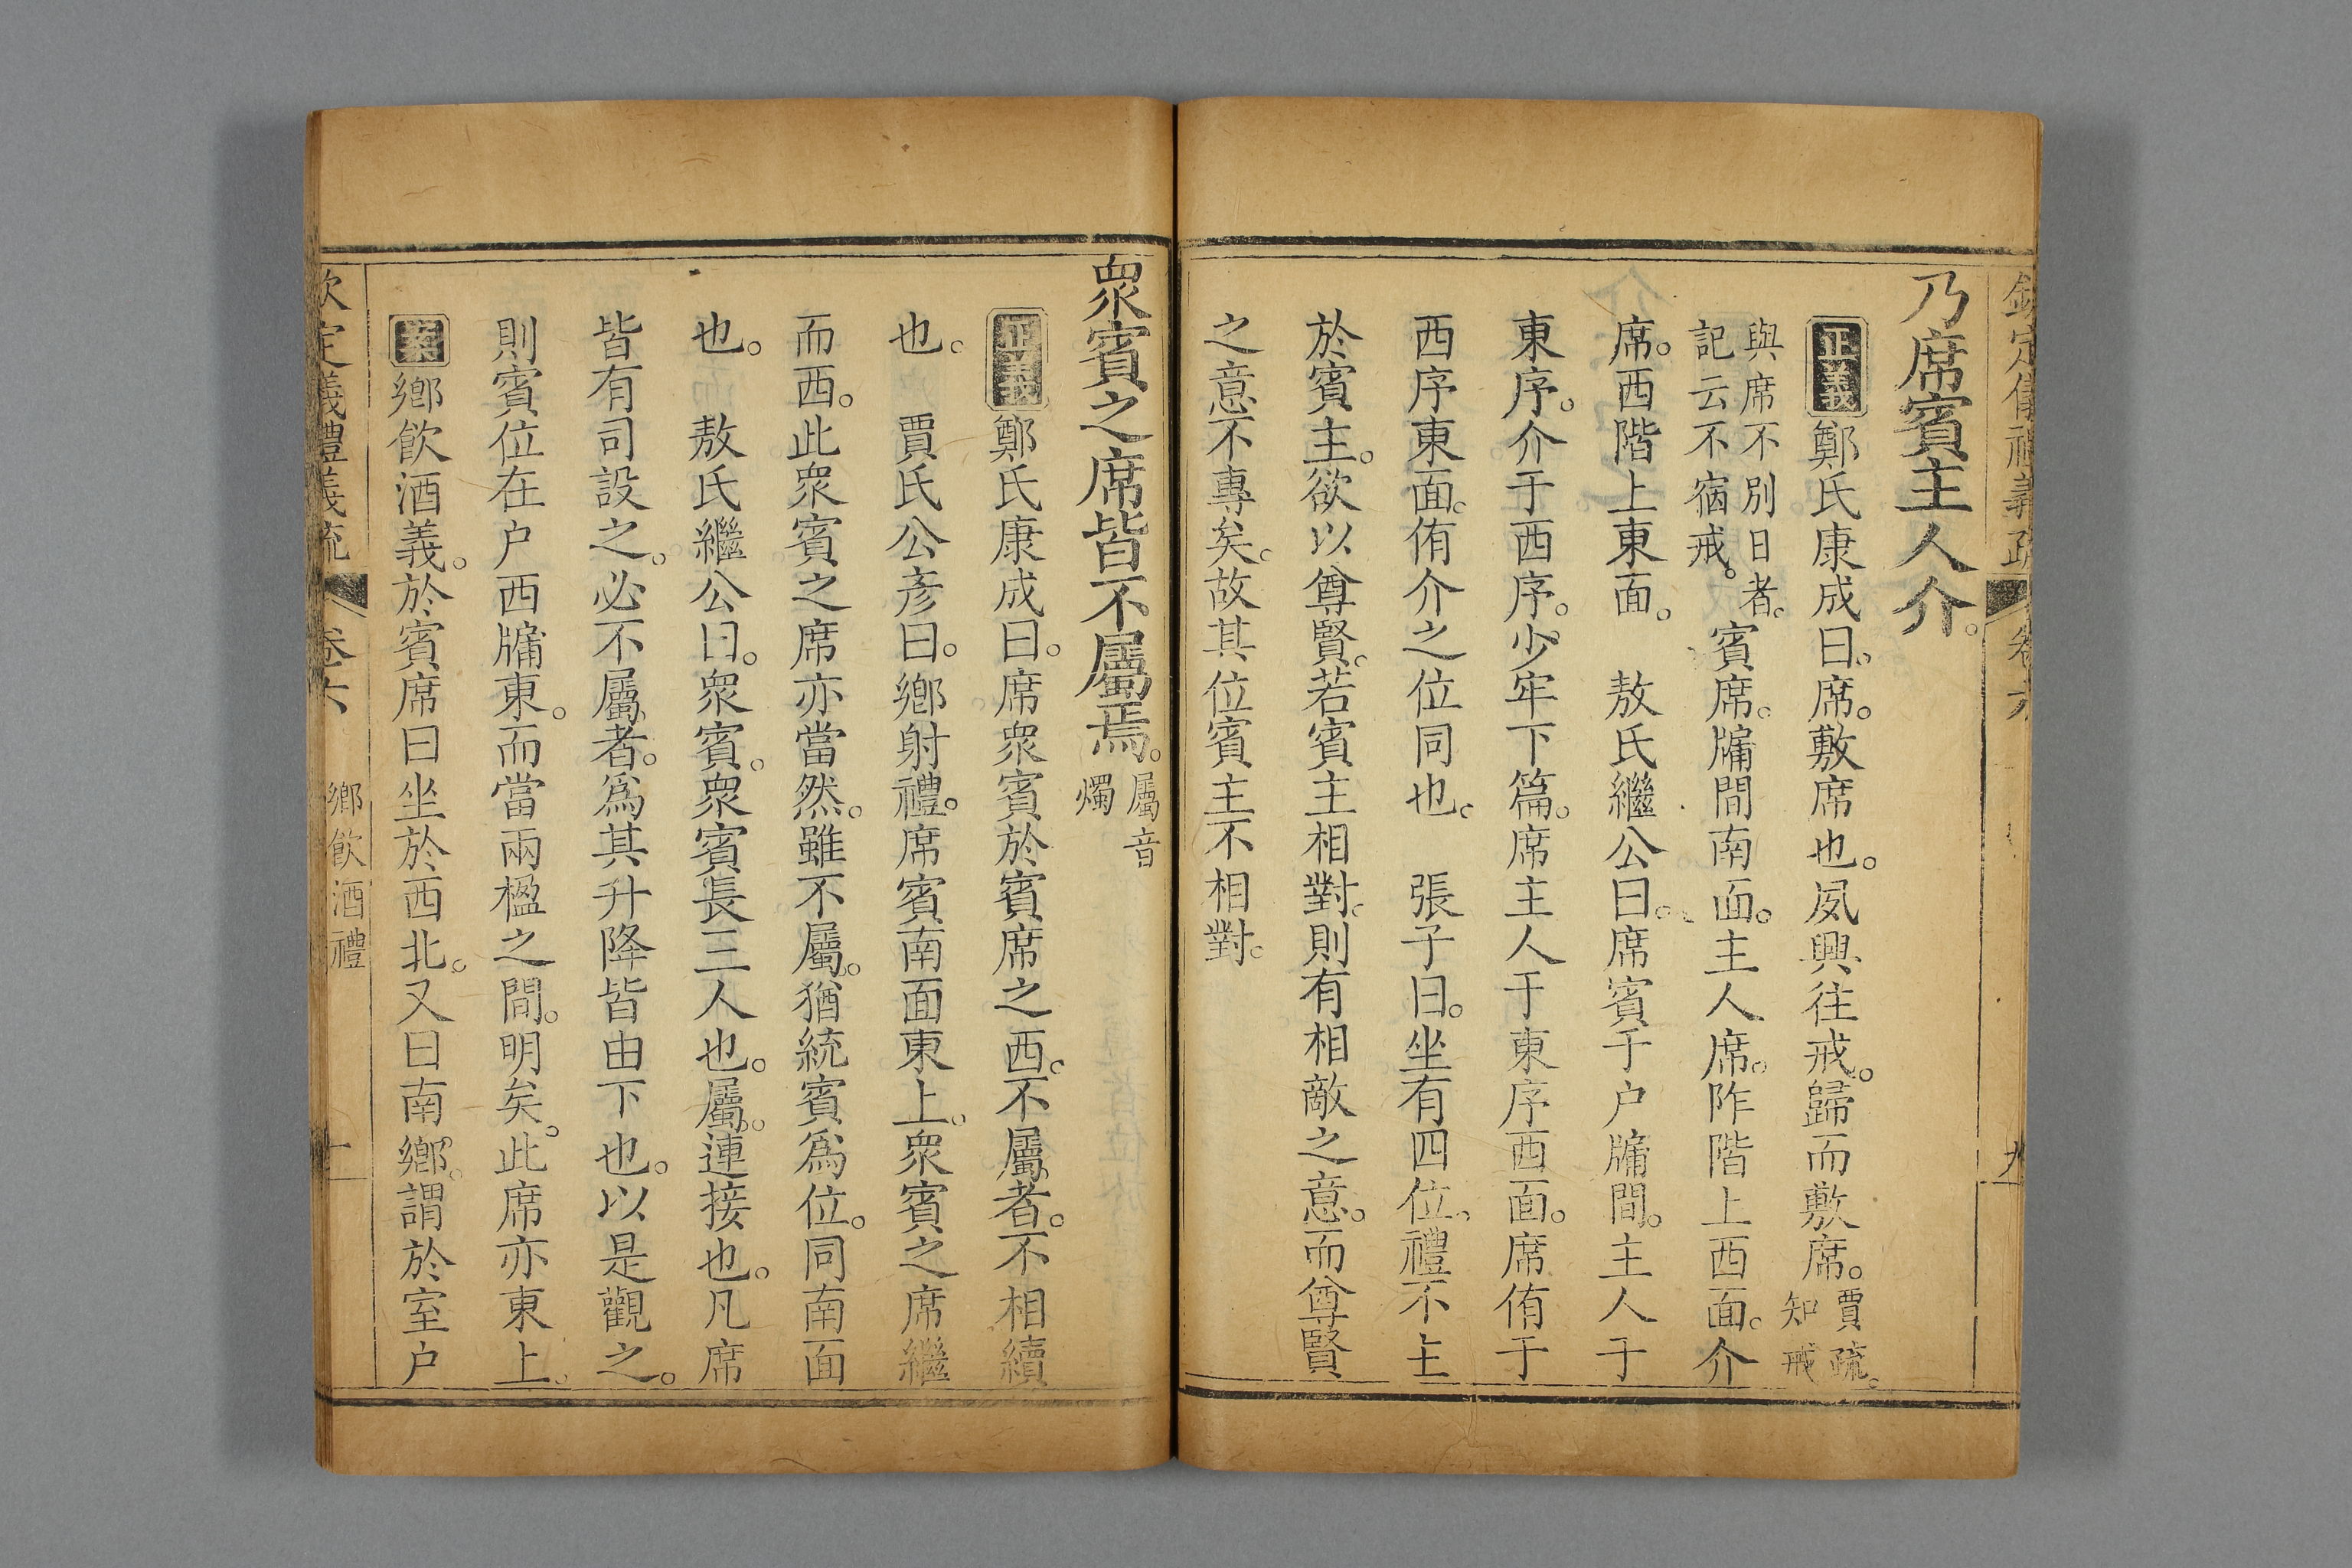 欽定儀禮義疏 卷六 九
乃席賓主人介。
正義鄭氏康成曰。席。敷席也。夙興往戒。歸而敷席。賈疏。知戒
與席不別日者。記云不宿戒。賓席。牖間南面。主人席。阼階上西面。介
席。西階上東面。 敖氏繼公曰。席賓于户牖間。主人于
東序。介于西序。少牢下篇。席主人于東序西面。席侑于
西序東面。侑介之位同也。 張子曰。坐有四位。禮不主
於賓主。欲以尊賢。若賓主相對。則有相敵之意。而尊賢
之意不專矣。故其位賓主不相對。
衆賓之席皆不屬焉。屬音燭
正義鄭氏康成曰。席衆賓於賓席之西。不屬者。不相續
也。 賈氏公彥曰。鄉射禮。席賓南面東上。衆賓之席繼
而西。此衆賓之席亦當然。雖不屬。猶統賓爲位。同南面
也。 敖氏繼公曰。衆賓。衆賓長三人也。屬。連接也。凡席
皆有司設之。必不屬者。爲其升降皆由下也。以是觀之。
則賓位在户西牖東。而當兩楹之間。明矣。此席亦東上。
案鄉飲酒義。於賓席曰坐於西北。又曰南鄉。謂於室户
欽定儀禮義疏 卷六 鄉飲酒禮 十